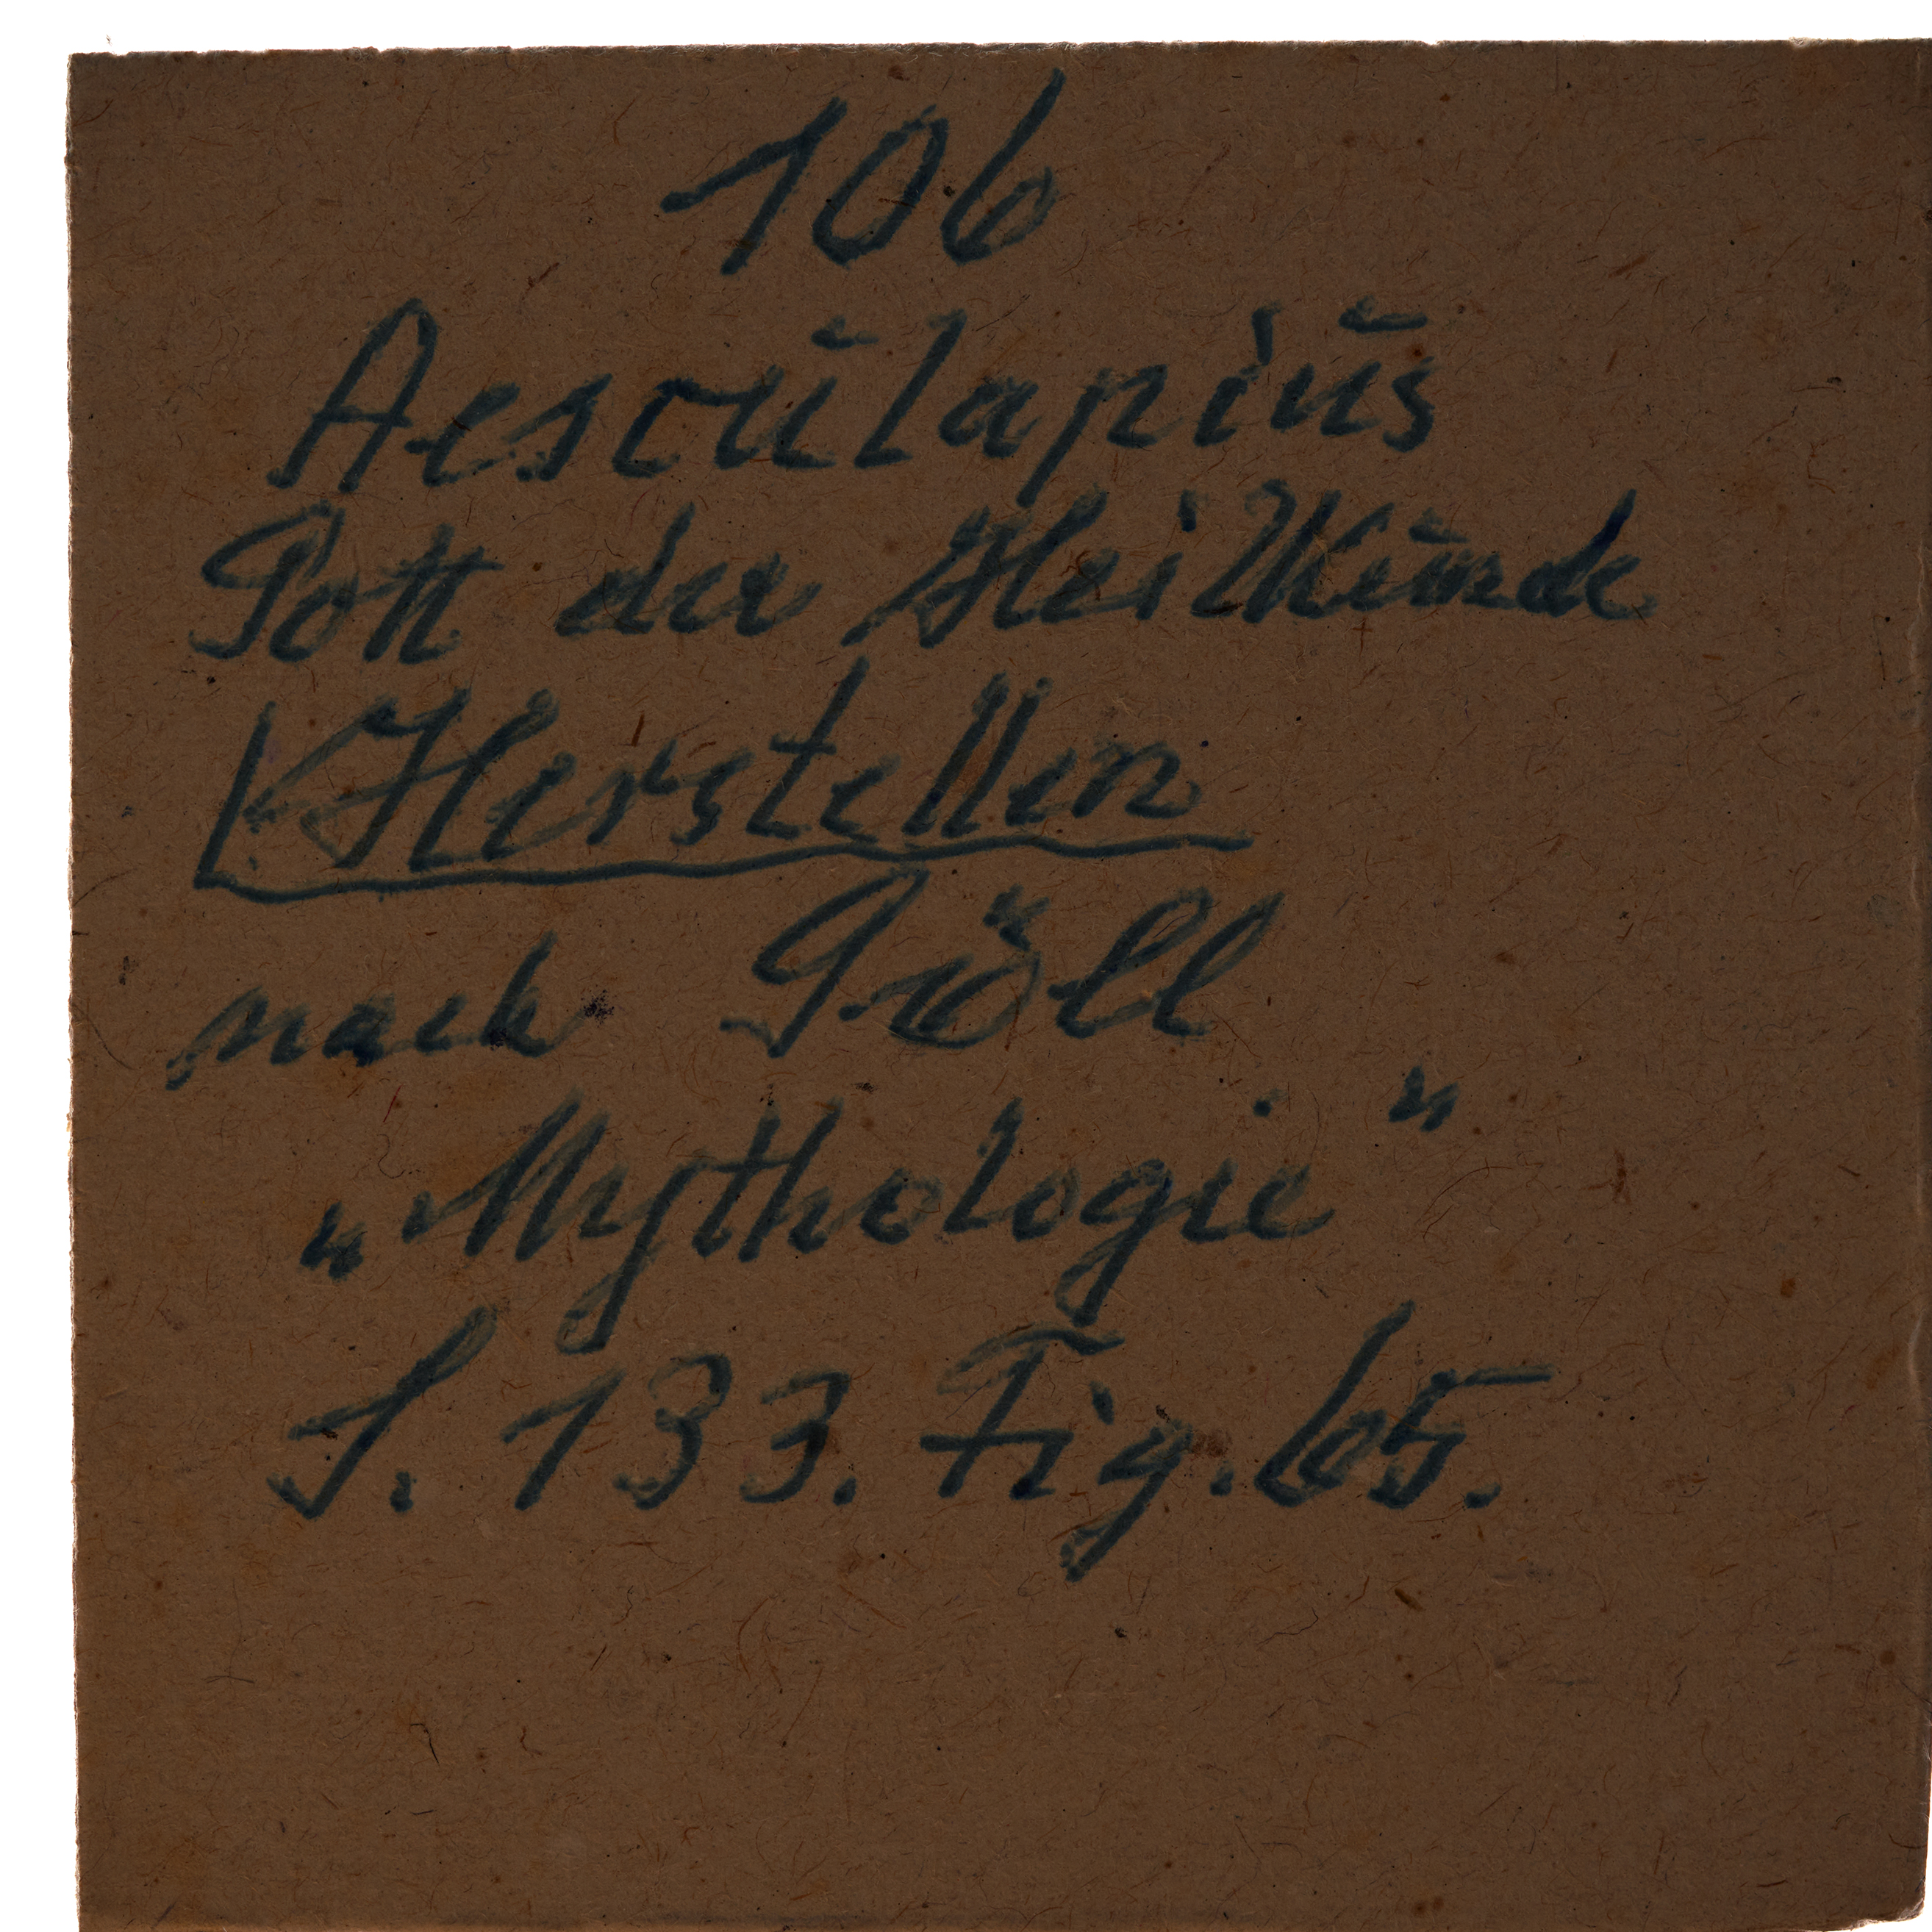 106
Aesculapius
Gott der Heilkunde
Herstellen
nach Göll
„Mythologie"
S. 133. Fig. 65.